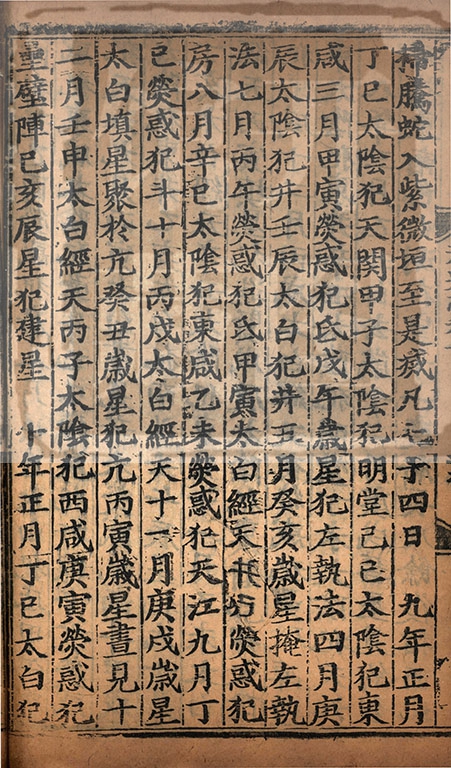 掃騰蛇入紫微垣至是滅凡七十四日　九年正月
丁巳太陰犯天關甲子太陰犯明堂己巳太陰犯東
咸三月甲寅熒惑犯氐戊午歲星犯左執法四月庚
辰太陰犯井壬辰太白犯井五月癸亥歲星掩左執
法七月丙午熒惑犯氐甲寅太白經天熒惑犯
房八月辛巳太陰犯東咸乙未熒惑犯天江九月丁
巳熒惑犯斗十月丙戌太白經天十一月庚戌歲星
太白填星聚於亢癸丑歲星犯亢丙寅歲星晝見十
二月壬申太白經天丙子太陰犯西咸庚寅熒惑犯
壘壁陣己亥辰星犯建星　十年正月丁巳太白犯